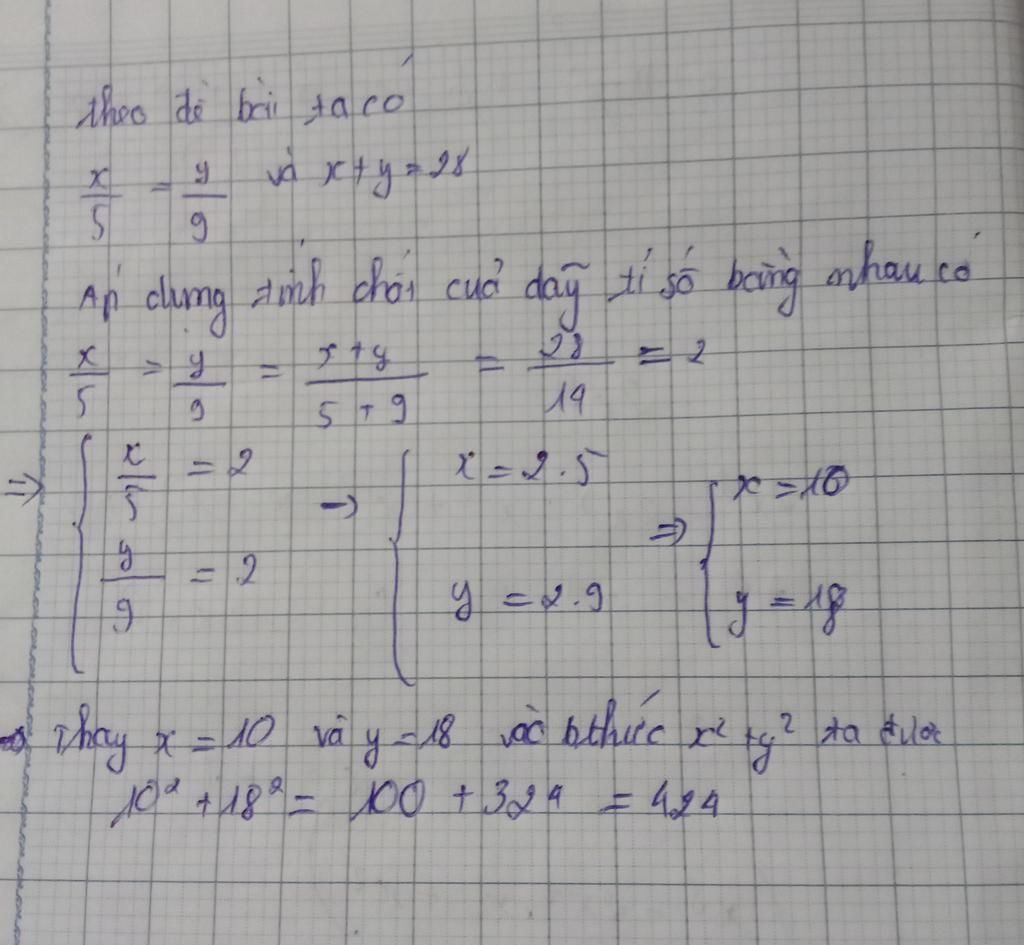 theo đề bài ta có
x/5 = y/9 và x+y=28
Áp dụng tính chất của dãy tỉ số bằng nhau có
x/5 = y/9 = x+y/5+9 = 28/14 = 2
=> { x/5 = 2 -> { x = 2.5 => { x = 10
y/9 = 2 y = 2.9 y = 18
=> Thay x = 10 và y = 18 vào bthức x² + y² ta được
10² + 18² = 100 + 324 = 424